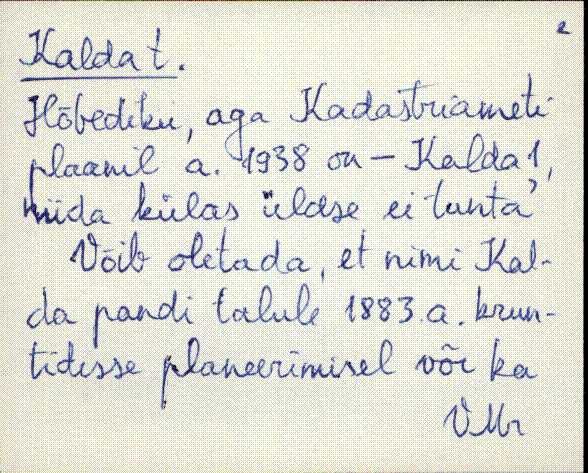 2
Kalda t.
Hõbediku, aga Kadastriameti
plaanil a. 1938 on – Kalda 1,
mida külas üldse ei tunta
Võib oletada, et nimi Kal-
da pandi talule 1883.a. krun-
tidesse planeerimisel või ka
VMr